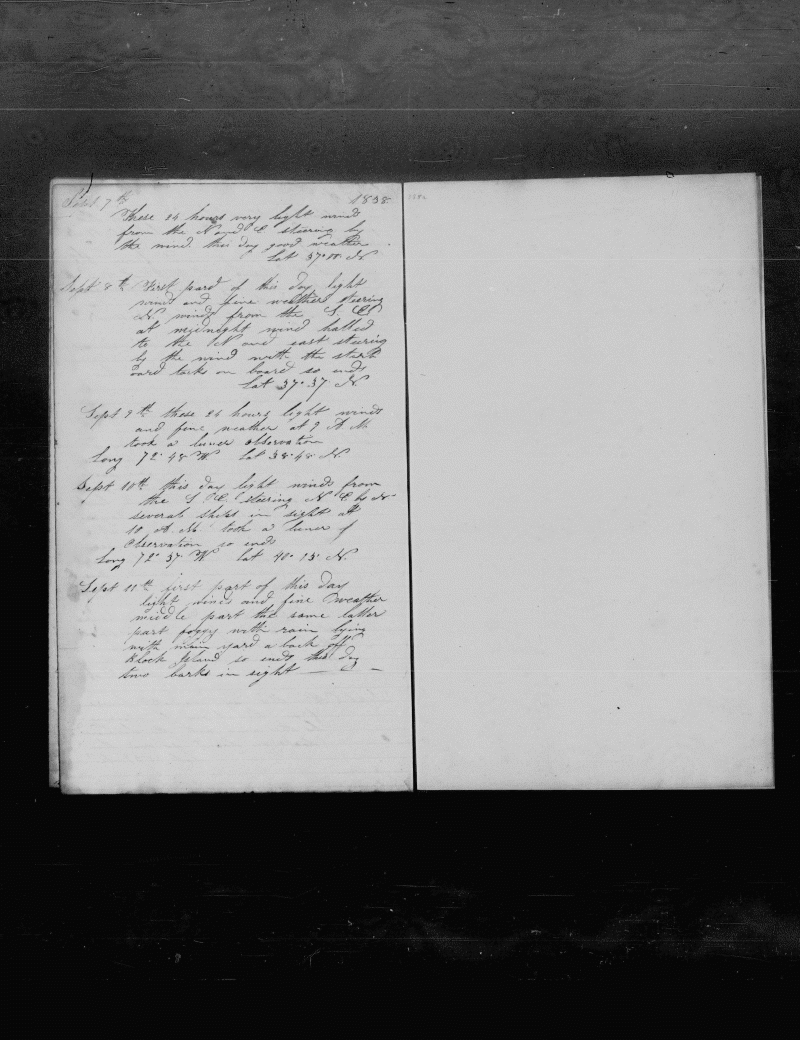 Sept 7th 1838
These 24 hours very light winds
from the N and E steering by
the wind this day good weather
Lat 37° N
Sept 8th First pard of this day light
winds and fine weather steering
N winds from the S. E
at midnight wind halled
to the N and east steering
by the wind with the starb
oard tacks on board so ends
Lat 37° 37 N
Sept 9th these 24 hours light winds
and fine weather at 9 A M.
took a luner observation
Long 72° 48 W Lat 38° 48 N.
Sept 10th this day light winds from
the S E. steering N E by N
several ships in sight at
10 A. M. took a luner
observation so ends
Long 72° 37 W Lat 40° 13 N.
Sept 11th first part of this day
light winds and fine weather
middle part the same latter
part foggy with rain lying
with main yard a back off
Block Island so ends this day
two barks in sight